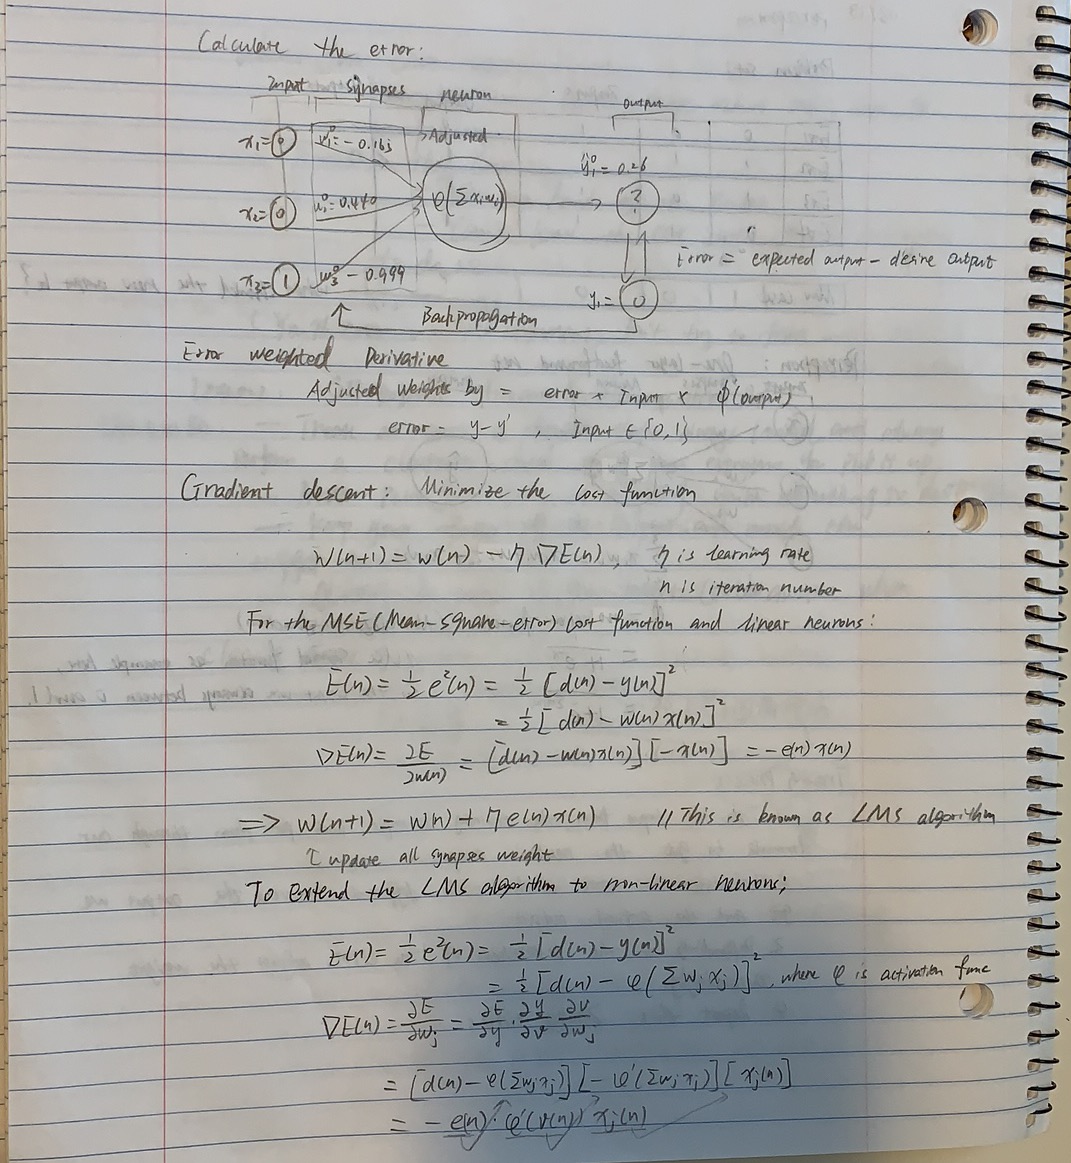 Calculate the error:
Input synapses neuron output
x₁=0 w₁⁰=-0.165 Adjusted
ŷ₁⁰=0.26
x₂=0 0.440 φ(Σxᵢwᵢ) ?
Error = expected output - desire output
x₃=1 w₃⁰ -0.999 y₁=0
Backpropagation
Error weighted Derivative
Adjusted weights by = error × Input × φ'(output)
error = y-y' , Input ∈ {0,1}
Gradient descent: Minimize the cost function
w(n+1) = w(n) - η ∇E(n), η is learning rate
n is iteration number
For the MSE (Mean-Square-error) cost function and linear neurons:
E(n) = ½ e²(n) = ½ [d(n) - y(n)]²
= ½ [d(n) - w(n) x(n)]²
∇E(n) = ∂E/∂w(n) = [d(n) - w(n)x(n)] [-x(n)] = -e(n) x(n)
=> w(n+1) = w(n) + η e(n) x(n) // This is known as LMS algorithm
↑ update all synapses weight
To extend the LMS algorithm to non-linear neurons;
E(n) = ½ e²(n) = ½ [d(n) - y(n)]²
= ½ [d(n) - φ(Σwⱼxⱼ)]², where φ is activation func
∇E(n) = ∂E/∂wⱼ = ∂E/∂y · ∂y/∂v ∂v/∂wⱼ
= [d(n) - φ(Σwⱼxⱼ)] [-φ'(Σwⱼxⱼ)] [xⱼ(n)]
= -e(n) · φ'(v(n)) xⱼ(n)